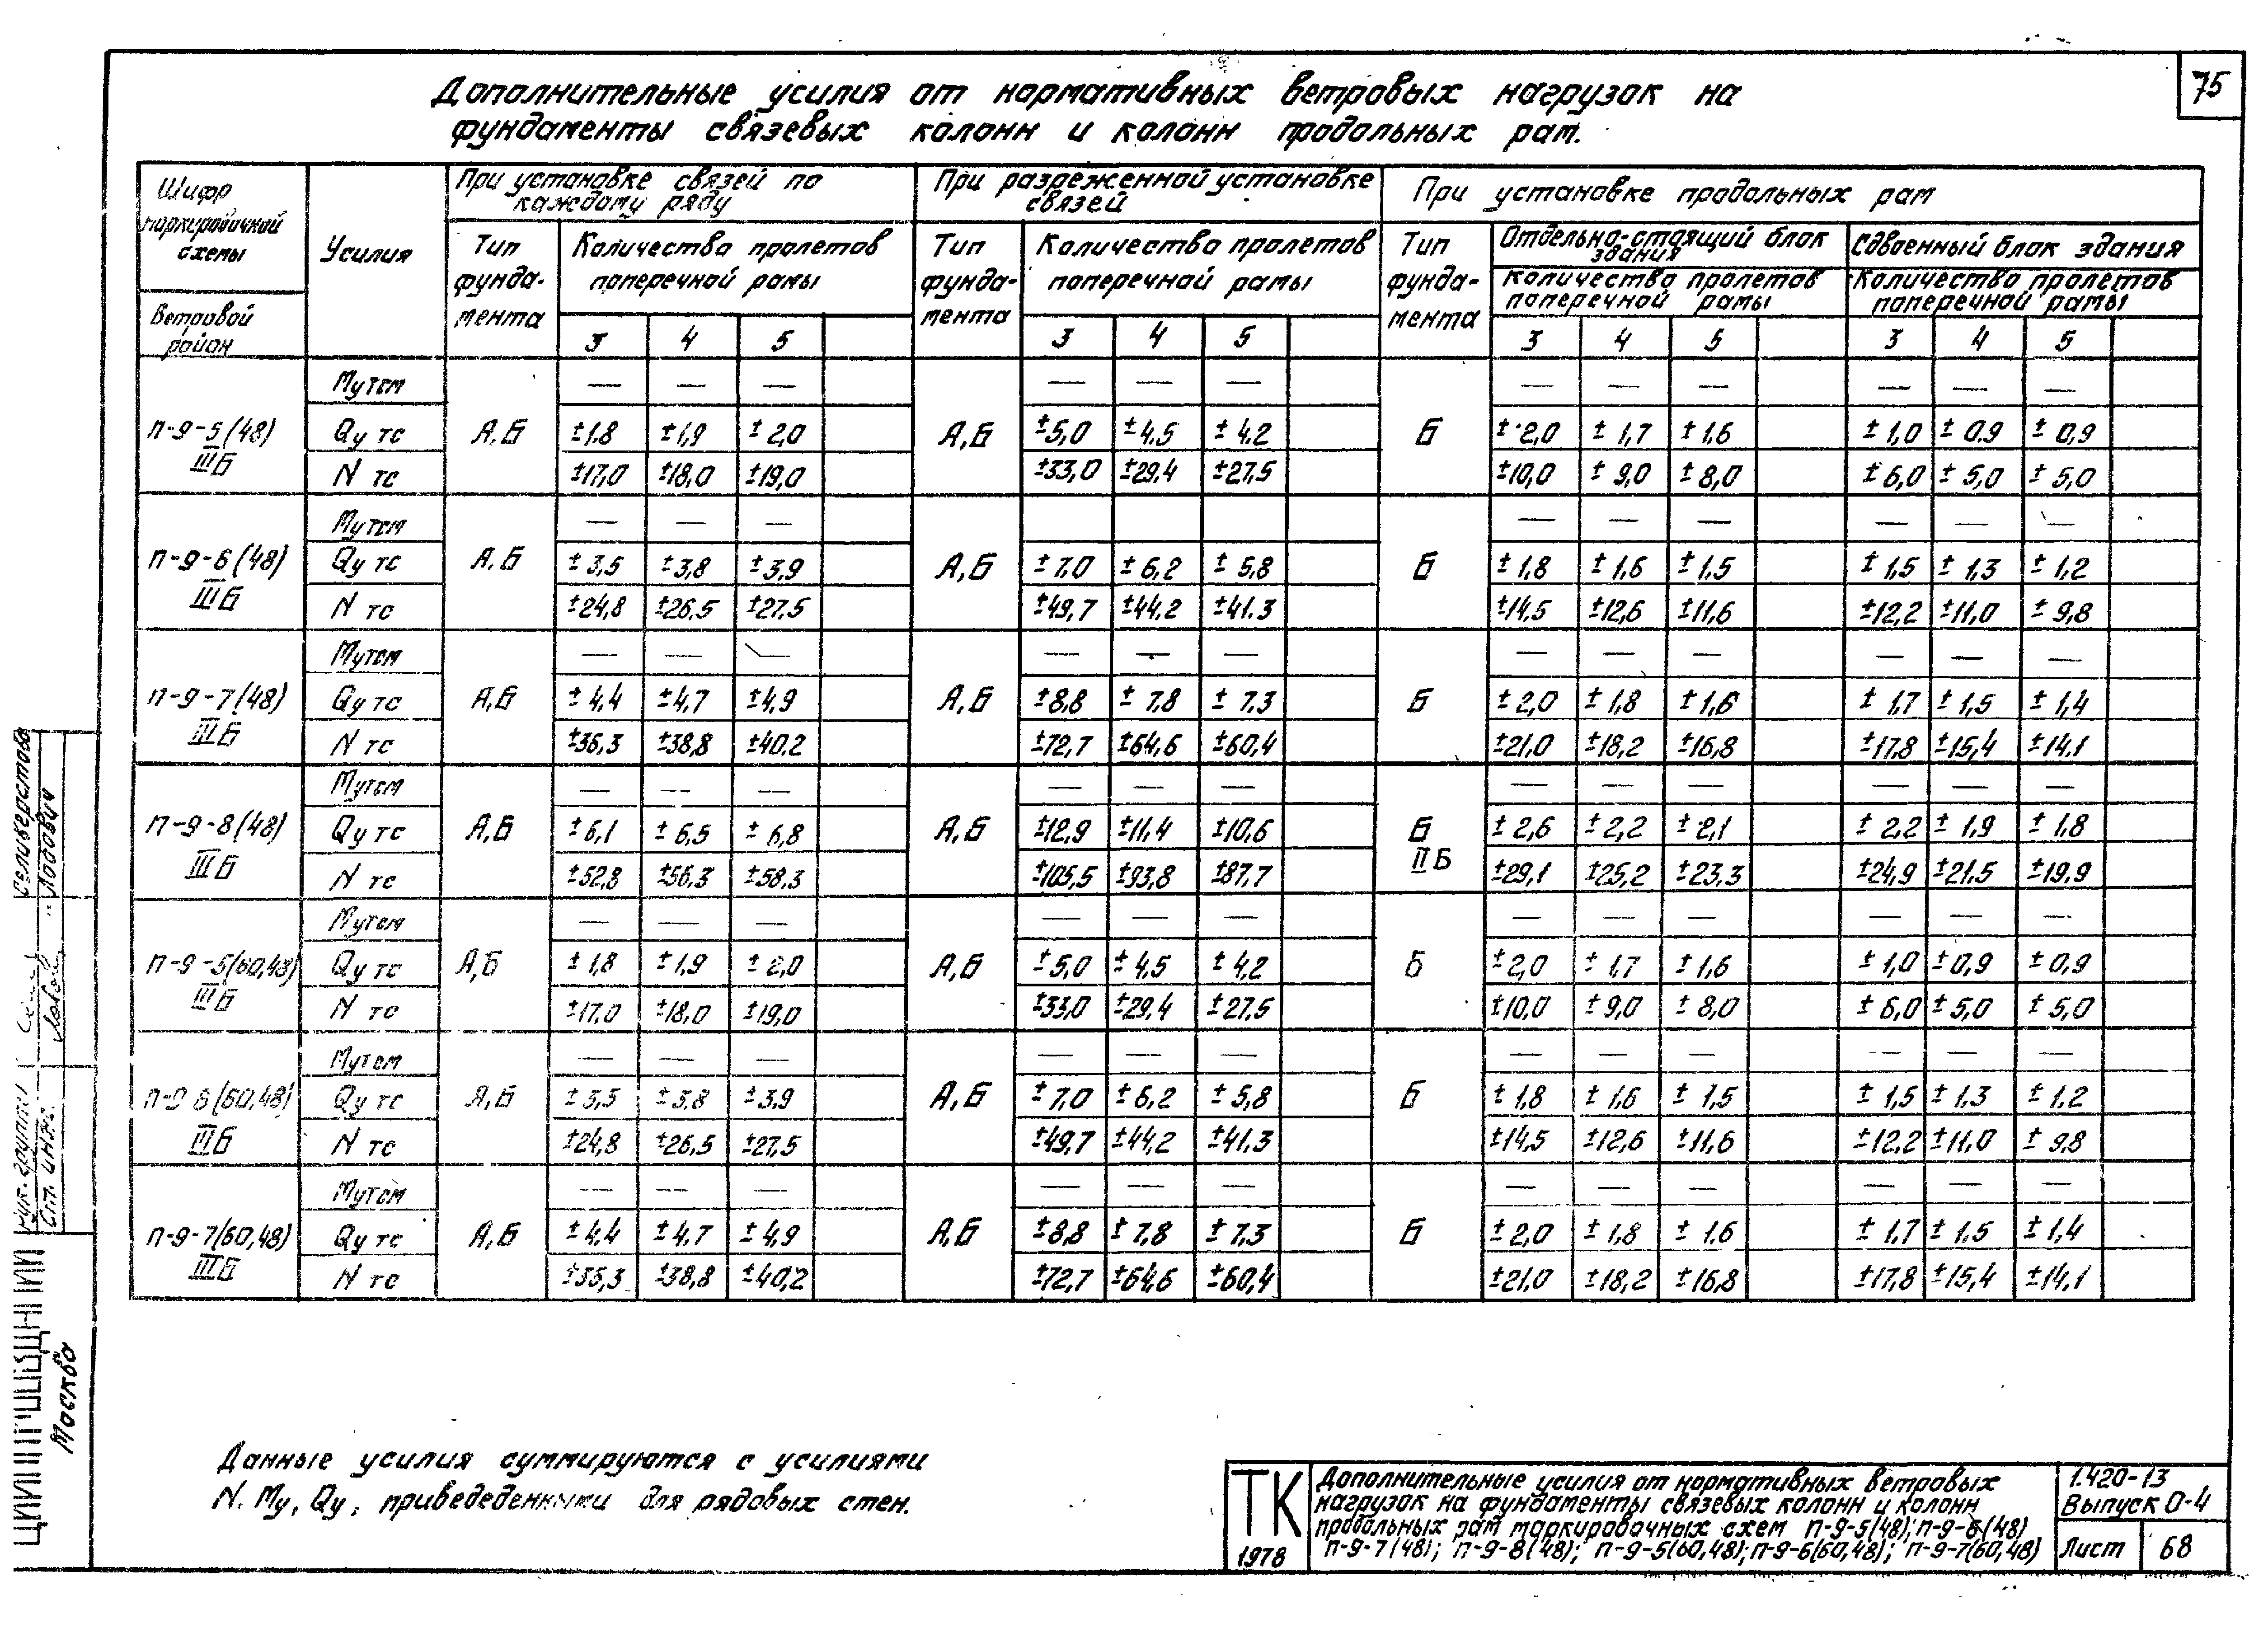 75
Дополнительные усилия от нормативных ветровых нагрузок на
фундаменты связевых колонн и колонн продольных рам.
Шифр маркировочной схемы
Ветровой район
Усилия
При установке связей по каждому ряду
При разреженной установке связей
При установке продольных рам
Тип фунда-мента
Количество пролетов поперечной рамы
Тип фунда-мента
Количество пролетов поперечной рамы
Тип фунда-мента
Отдельно-стоящий блок здания
Сдвоенный блок здания
Количество пролетов поперечной рамы
Количество пролетов поперечной рамы
3 4 5 3 4 5 3 4 5 3 4 5
П-9-5(48) IIIБ
Му тсм — — — — — — — — — — — —
Qу тс А,Б ±1,8 ±1,9 ±2,0 А,Б ±5,0 ±4,5 ±4,2 Б ±2,0 ±1,7 ±1,6 ±1,0 ±0,9 ±0,9
N тс ±17,0 ±18,0 ±19,0 ±33,0 ±29,4 ±27,5 ±10,0 ±9,0 ±8,0 ±6,0 ±5,0 ±5,0
П-9-6(48) IIIБ
Му тсм — — — — — — — — —
Qу тс А,Б ±3,5 ±3,8 ±3,9 А,Б ±7,0 ±6,2 ±5,8 Б ±1,8 ±1,6 ±1,5 ±1,5 ±1,3 ±1,2
N тс ±24,8 ±26,5 ±27,5 ±49,7 ±44,2 ±41,3 ±14,5 ±12,6 ±11,6 ±12,2 ±11,0 ±9,8
П-9-7(48) IIIБ
Му тсм — — — — — — — — — — — —
Qу тс А,Б ±4,4 ±4,7 ±4,9 А,Б ±8,8 ±7,8 ±7,3 Б ±2,0 ±1,8 ±1,6 ±1,7 ±1,5 ±1,4
N тс ±36,3 ±38,8 ±40,2 ±72,7 ±64,6 ±60,4 ±21,0 ±18,2 ±16,8 ±17,8 ±15,4 ±14,1
П-9-8(48) IIIБ
Му тсм — — — — — — — — — — — —
Qу тс А,Б ±6,1 ±6,5 ±6,8 А,Б ±12,9 ±11,4 ±10,6 Б IIБ ±2,6 ±2,2 ±2,1 ±2,2 ±1,9 ±1,8
N тс ±52,8 ±56,3 ±58,3 ±105,5 ±93,8 ±87,7 ±29,1 ±25,2 ±23,3 ±24,9 ±21,5 ±19,9
П-9-5(60,48) IIIБ
Му тсм — — — — — — — — — — — —
Qу тс А,Б ±1,8 ±1,9 ±2,0 А,Б ±5,0 ±4,5 ±4,2 Б ±2,0 ±1,7 ±1,6 ±1,0 ±0,9 ±0,9
N тс ±17,0 ±18,0 ±19,0 ±33,0 ±29,4 ±27,5 ±10,0 ±9,0 ±8,0 ±6,0 ±5,0 ±5,0
П-9 6(60,48) IIIБ
Му тсм — — — — — — — — — — — —
Qу тс А,Б ±3,5 ±3,8 ±3,9 А,Б ±7,0 ±6,2 ±5,8 Б ±1,8 ±1,6 ±1,5 ±1,5 ±1,3 ±1,2
N тс ±24,8 ±26,5 ±27,5 ±49,7 ±44,2 ±41,3 ±14,5 ±12,6 ±11,6 ±12,2 ±11,0 ±9,8
П-9-7(60,48) IIIБ
Му тсм — — — — — — — — — — — —
Qу тс А,Б ±4,4 ±4,7 ±4,9 А,Б ±8,8 ±7,8 ±7,3 Б ±2,0 ±1,8 ±1,6 ±1,7 ±1,5 ±1,4
N тс ±38,8 ±40,2 ±72,7 ±64,6 ±60,4 ±21,0 ±18,2 ±16,8 ±17,8 ±15,4 ±14,1
Данные усилия суммируются с усилиями
N. Му, Qу, приведеденными для рядовых стен.
ТК
1978
Дополнительные усилия от нормативных ветровых
нагрузок на фундаменты связевых колонн и колонн
продольных рам маркировочных схем П-9-5(48); П-9-6(48)
П-9-7(48); П-9-8(48); П-9-5(60,48); П-9-6(60,48); П-9-7(60,48)
1.420-13
Выпуск 0-4
Лист 68
Рук. группы
Ст. инж.
Селиверстова
Москва